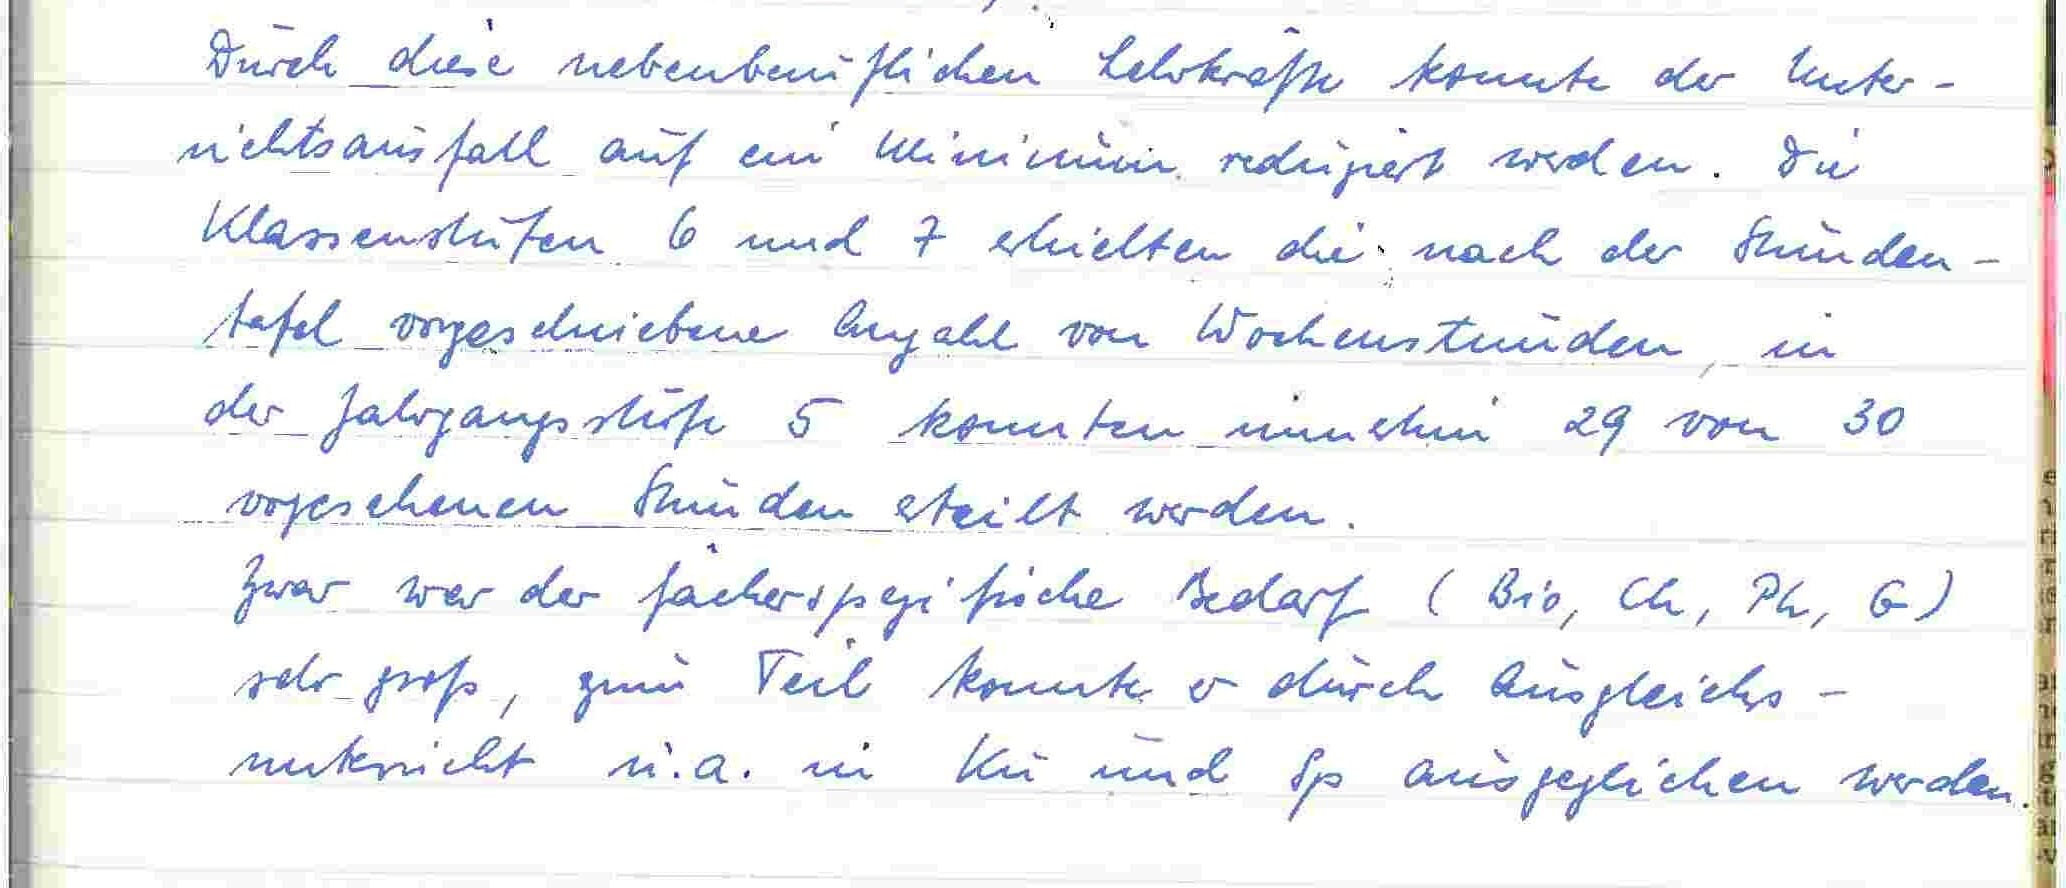 Durch diese nebenberuflichen Lehrkräfte konnte der Unter-
richtsausfall auf ein Minimum reduziert werden. Die
Klassenstufen 6 und 7 erhielten die nach der Stunden-
tafel vorgeschriebene Anzahl von Wochenstunden, in
der Jahrgangsstufe 5 konnten immerhin 29 von 30
vorgesehenen Stunden erteilt werden.
Zwar war der fächerspezifische Bedarf (Bio, Ch, Ph, G)
sehr groß, zum Teil konnte er durch Ausgleichs-
unterricht u.a. in Ku und Sp ausgeglichen werden.